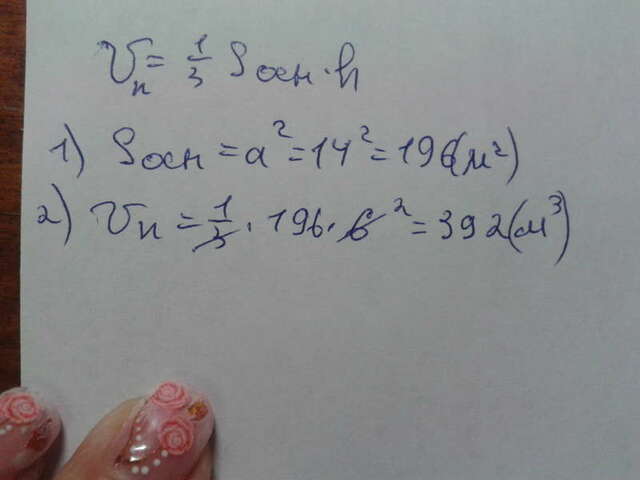 Vп = 1/3 Sосн · h
1) Sосн = a² = 14² = 196(м²)
2) Vп = 1/3 · 196 · 6 ² = 392(м³)